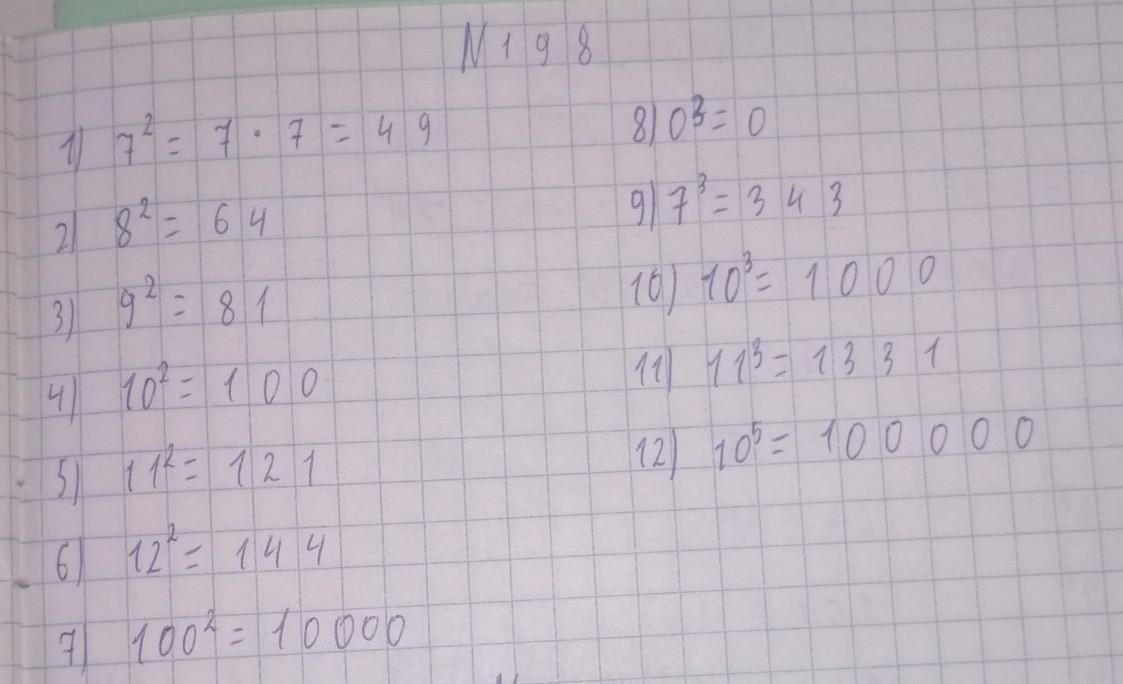 N 198
1) 7² = 7 · 7 = 49
2) 8² = 64
3) 9² = 81
4) 10² = 100
5) 11² = 121
6) 12² = 144
7) 100² = 10000
8) 0³ = 0
9) 7³ = 343
10) 10³ = 1000
11) 11³ = 1331
12) 10⁵ = 100000